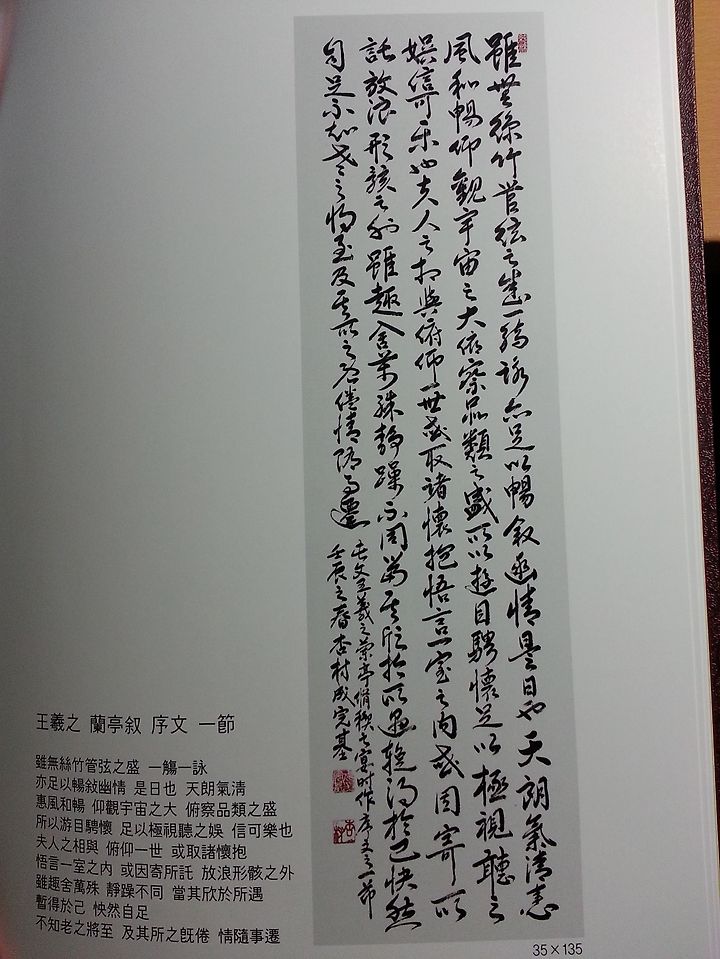 雖無絲竹管弦之盛一觴一詠亦足以暢敘幽情是日也天朗氣清惠
風和暢仰觀宇宙之大俯察品類之盛所以遊目騁懷足以極視聽之
娛信可樂也夫人之相與俯仰一世或取諸懷抱悟言一室之內或因寄所
託放浪形骸之外雖趣舍萬殊靜躁不同當其欣於所遇暫得於己快然
自足不知老之將至及其所之既倦情隨事遷
此文王羲之蘭亭脩禊之宴時作序文之一節
壬辰之春杏村成完基
王羲之 蘭亭叙 序文 一節
雖無絲竹管弦之盛 一觴一詠
亦足以暢敍幽情 是日也 天朗氣淸
惠風和暢 仰觀宇宙之大 俯察品類之盛
所以游目騁懷 足以極視聽之娛 信可樂也
夫人之相與 俯仰一世 或取諸懷抱
悟言一室之內 或因寄所託 放浪形骸之外
雖趣舍萬殊 靜躁不同 當其欣於所遇
暫得於己 怏然自足
不知老之將至 及其所之旣倦 情隨事遷
35×135